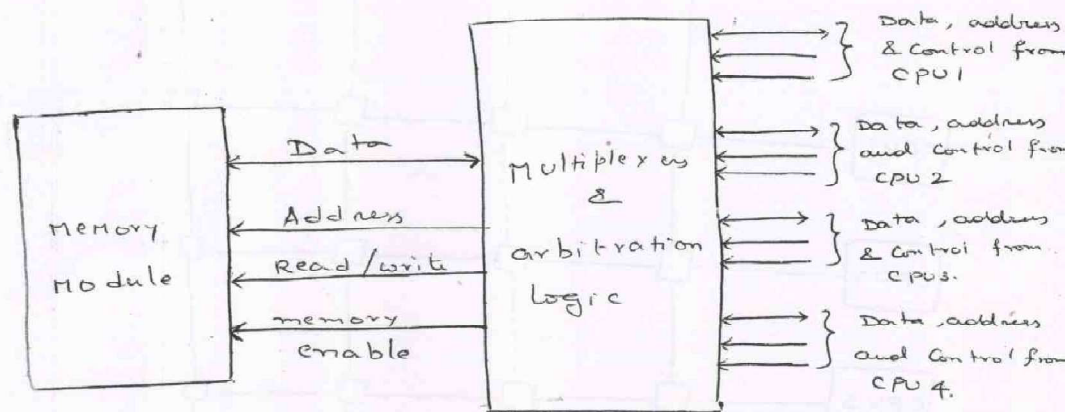 Memory
Module
Data
Address
Read/write
memory
enable
Multiplexers
&
arbitration
logic
Data, address
& Control from
CPU1
Data, address
and Control from
CPU 2
Data, address
& Control from
CPU3.
Data, address
and Control from
CPU 4.